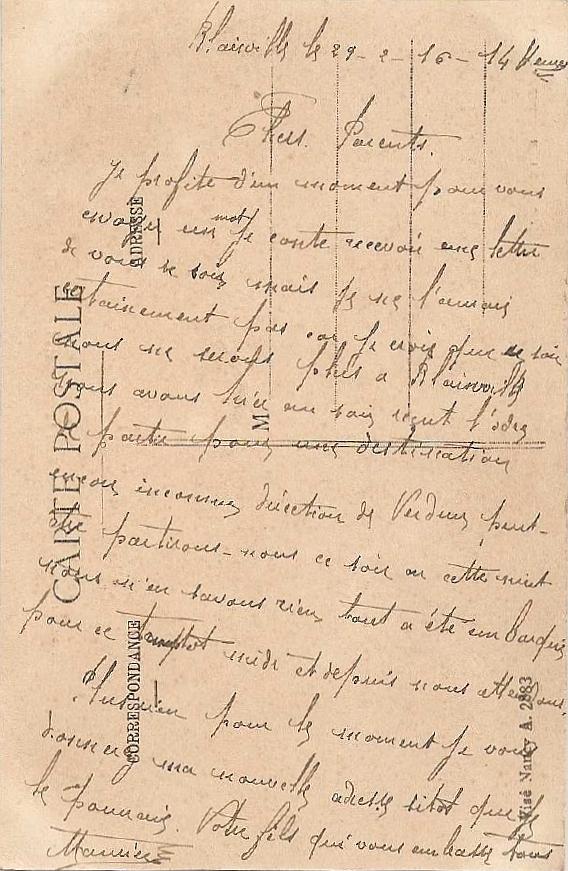 Blainville le 29-2-16 - 14 heures
Chers Parents.
Je profite d'un moment pour vous
envoyer un mot Je conte recevoir une lettre
de vous se soir mais je ne l'aurais
certainement pas car je crois que ce soir
nous ne serons plus a Blainville
nous avons hier au soir reçut l'ordre
de partir pour une destination
encore inconnue direction de Verdun, peut-
être partirons-nous ce soir ou cette nuit
nous n'en savons rien tout a été embarqué
pour ce midi et depuis nous attendons.
Plus rien pour le moment je vous
donnerez ma nouvelle adresse sitot que je
le pourrais. Votre fils qui vous embrasse tous
CARTE POSTALE
ADRESSE
CORRESPONDANCE
M
Visé Nancy A. 2883